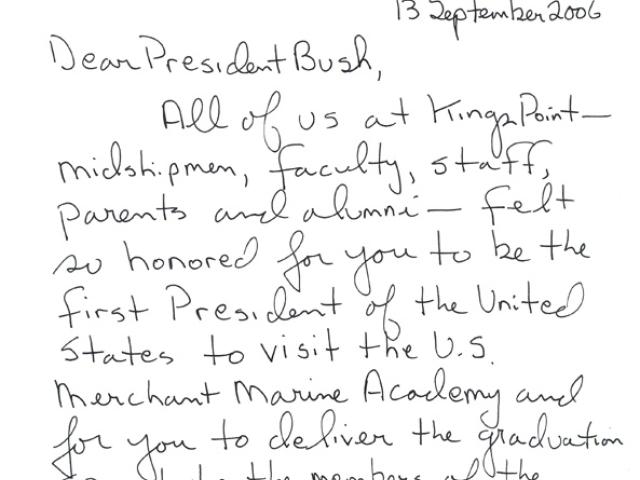 13 September 2006
Dear President Bush,
All of us at Kings Point—
midshipmen, faculty, staff,
parents and alumni — felt
so honored for you to be the
first President of the United
States to visit the U.S.
Merchant Marine Academy and
for you to deliver the graduation
the members of the